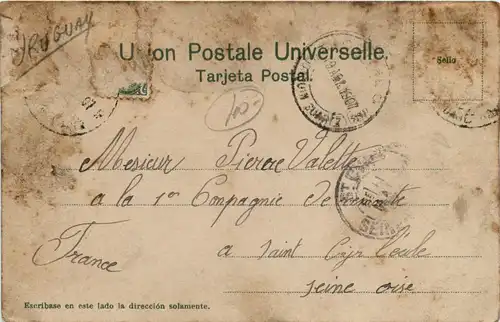 URUGUAY
Union Postale Universelle.
Tarjeta Postal.
Sello
100-
Mesieur Pierre Valette
a la 1er Compagnie de remonte
France a Saint Cyr Lecole
Seine oise
Escríbase en este lado la dirección solamente.